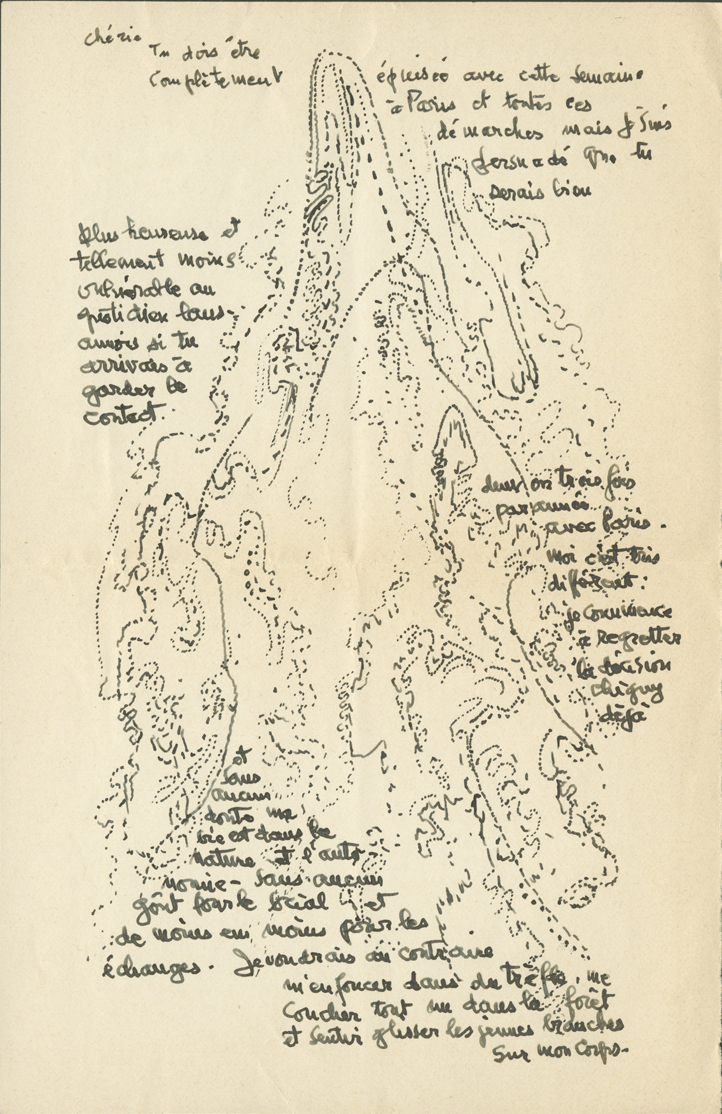 chérie
Tu dois être
complètement
épuisée avec cette semaine
à Paris et toutes ces
démarches mais je suis
persuadé que tu
serais bien
plus heureuse et
tellement moins
vulnérable au
quotidien lans-
amois si tu
arrivais à
garder le
contact.
deux ou trois fois
par année
avec Paris.
Moi c'est très
différent:
je commence
à regretter
la décision
chiguy
déja
et
sans
aucun
doute ma
vie est dans la
nature et l'auto
nomie - sans aucun
goût pour le social et
de moins en moins pour les
échanges. Je voudrais au contraire
m'enfoncer dans du trèfle, me
coucher tout nu dans la forêt
et sentir glisser les jeunes branches
sur mon corps.